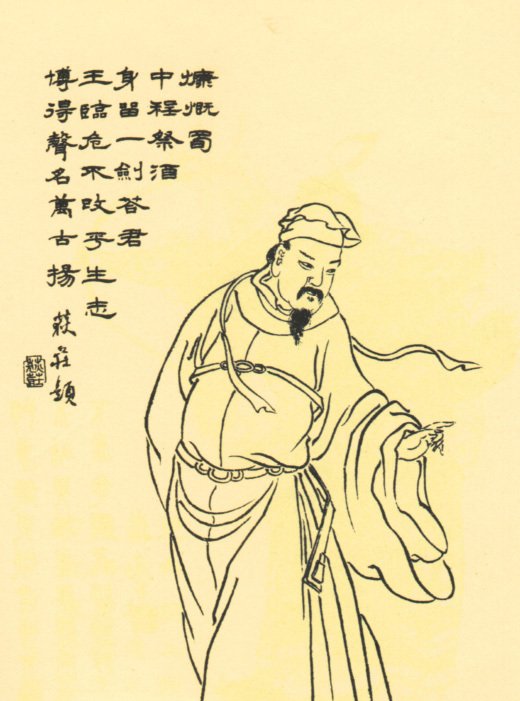 慷慨蜀
中程祭酒
身留一劍答君
王臨危不改平生志
博得聲名萬古揚
荻莊題